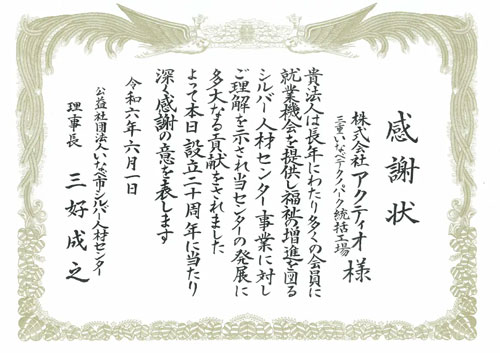 感謝状
株式会社アクティオ
三重いなべテクノパーク統括工場
様
貴法人は長年にわたり多くの会員に
就業機会を提供し福祉の増進を図る
シルバー人材センター事業に対し
ご理解を示され当センターの発展に
多大なる貢献をされました
よって本日設立二十周年に当たり
深く感謝の意を表します
令和六年六月一日
公益社団法人いなべ市シルバー人材センター
理事長 三好成之